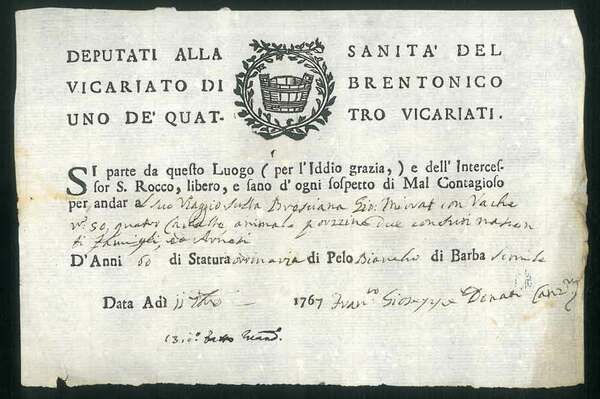 DEPUTATI ALLA SANITA' DEL
VICARIATO DI BRENTONICO
UNO DE' QUAT- TRO VICARIATI.
SI parte da questo Luogo ( per l'Iddio grazia, ) e dell' Interces-
sor S. Rocco, libero, e sano d' ogni sospetto di Mal Contagioso
per andar a suo Viaggio sulla Bresciana Gio: con Vache
n.º 50, quatro Cavalle, animale porzine due
D'Anni 60 di Statura ordinaria di Pelo Biancho di Barba simile
Data Adì 1767 Gioseppe Donati